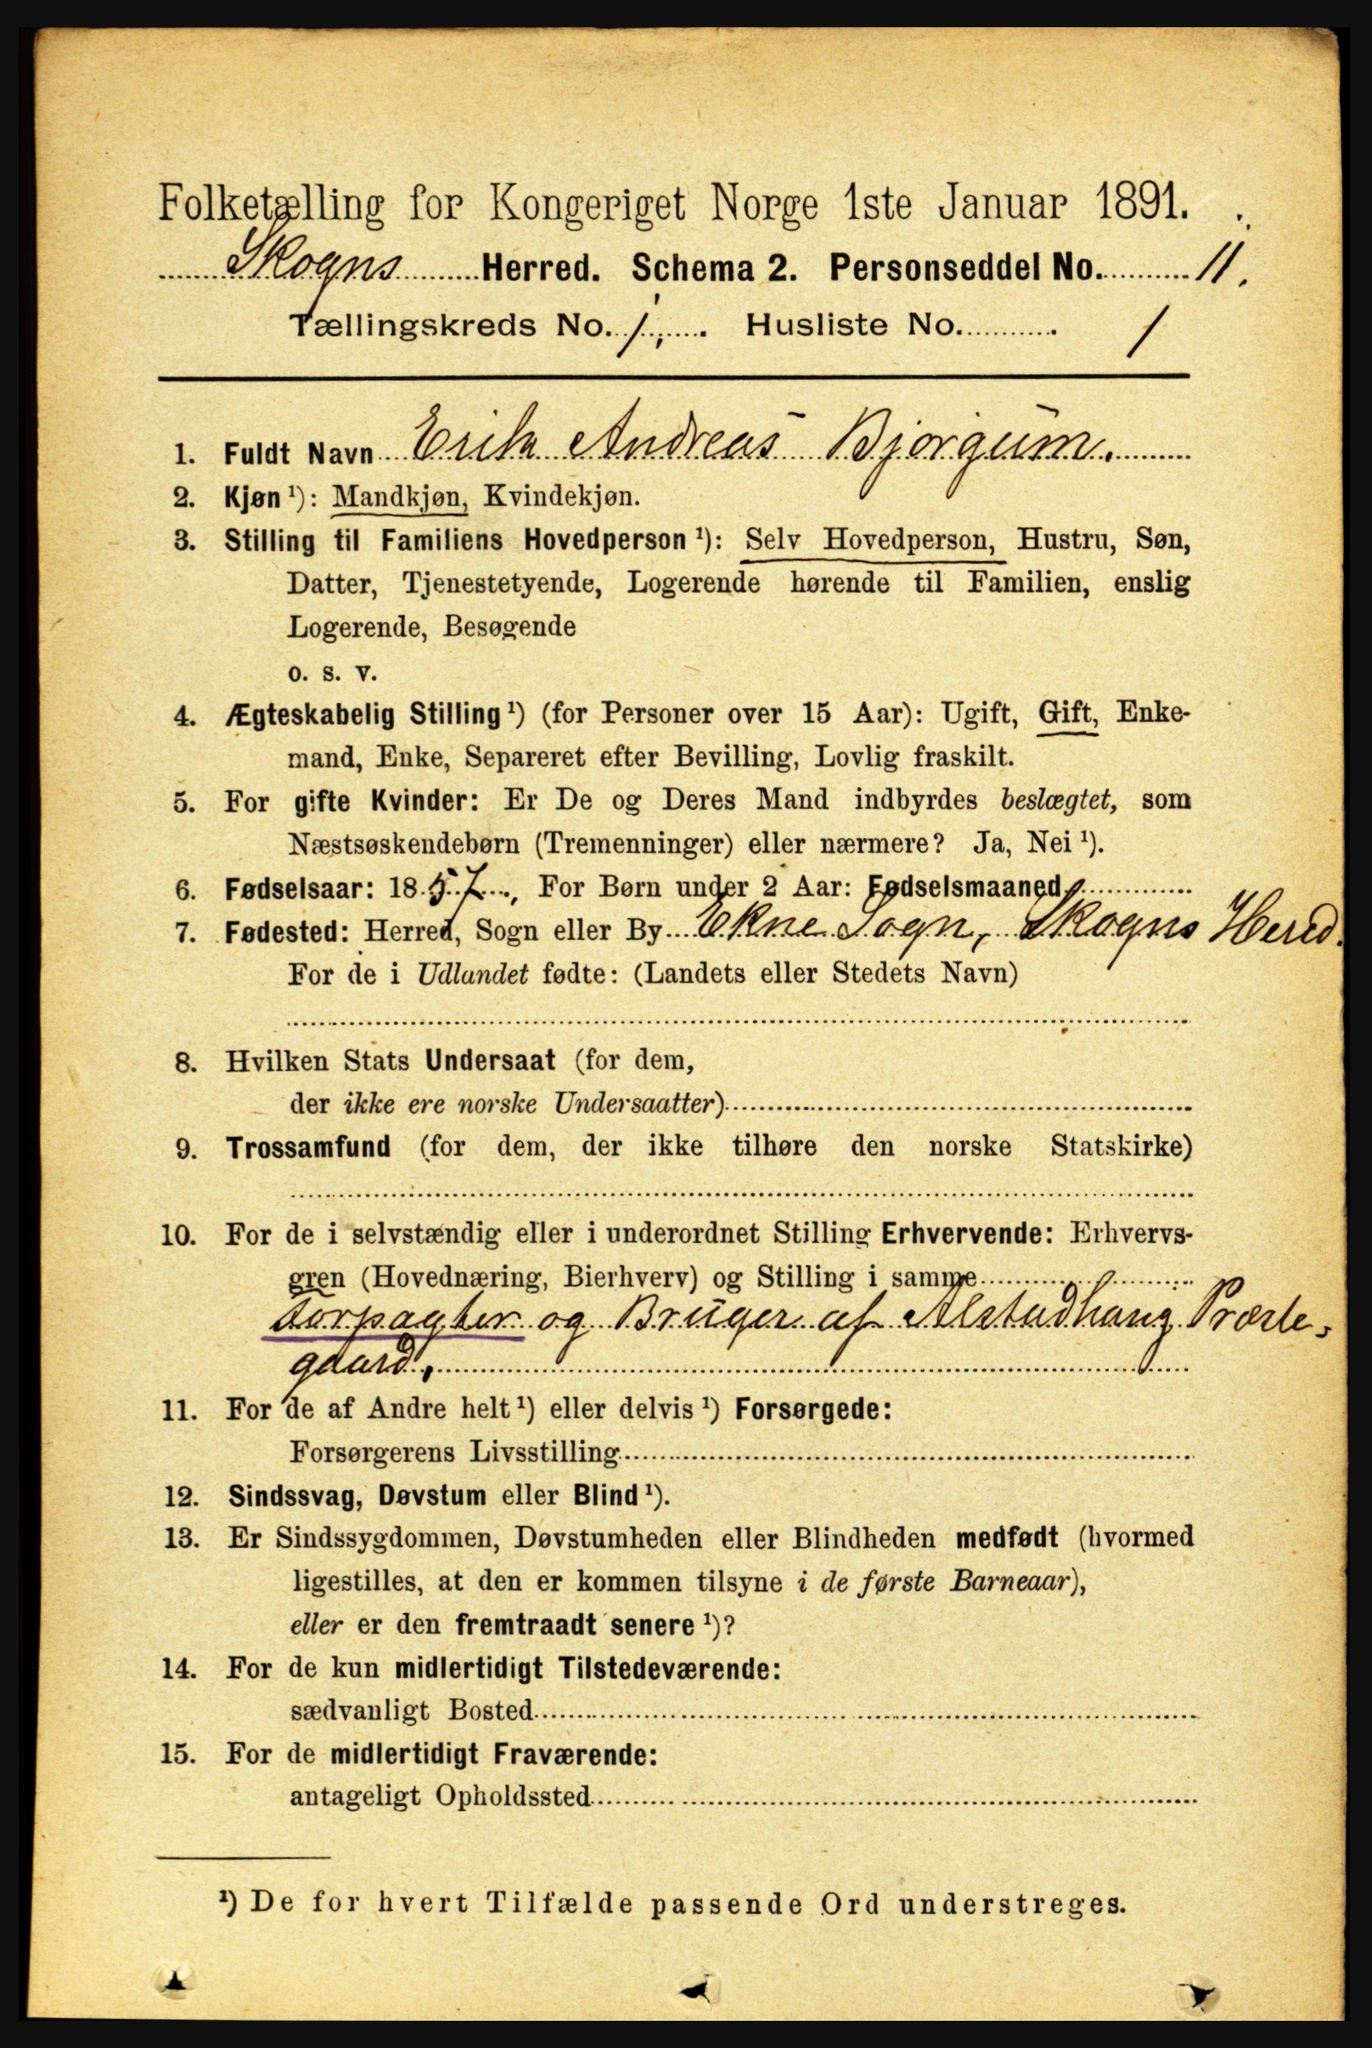 Folketælling for Kongeriget Norge 1ste Januar 1891.
Skogns Herred. Schema 2. Personseddel No. 11.
Tællingskreds No. 1, . Husliste No. . 1
1. Fuldt Navn Erik Andreas Bjørgum.
2. Kjøn ¹): Mandkjøn, Kvindekjøn.
3. Stilling til Familiens Hovedperson ¹): Selv Hovedperson, Hustru, Søn,
Datter, Tjenestetyende, Logerende hørende til Familien, enslig
Logerende, Besøgende
o. s. v.
4. Ægteskabelig Stilling ¹) (for Personer over 15 Aar): Ugift, Gift, Enke-
mand, Enke, Separeret efter Bevilling, Lovlig fraskilt.
5. For gifte Kvinder: Er De og Deres Mand indbyrdes beslægtet, som
Næstsøskendebørn (Tremenninger) eller nærmere? Ja, Nei ¹).
6. Fødselsaar: 1857., For Børn under 2 Aar: Fødselsmaaned
7. Fødested: Herred, Sogn eller By Ekne Sogn, Skogns Hered.
For de i Udlandet fødte: (Landets eller Stedets Navn)
8. Hvilken Stats Undersaat (for dem,
der ikke ere norske Undersaatter)
9. Trossamfund (for dem, der ikke tilhøre den norske Statskirke)
10. For de i selvstændig eller i underordnet Stilling Erhvervende: Erhvervs-
gren (Hovednæring, Bierhverv) og Stilling i samme
Forpagter og Bruger af Alstadhaug Præste-
gaard.
11. For de af Andre helt ¹) eller delvis ¹) Forsørgede:
Forsørgerens Livsstilling
12. Sindssvag, Døvstum eller Blind ¹).
13. Er Sindssygdommen, Døvstumheden eller Blindheden medfødt (hvormed
ligestilles, at den er kommen tilsyne i de første Barneaar),
eller er den fremtraadt senere ¹)?
14. For de kun midlertidigt Tilstedeværende:
sædvanligt Bosted
15. For de midlertidigt Fraværende:
antageligt Opholdssted
¹) De for hvert Tilfælde passende Ord understreges.